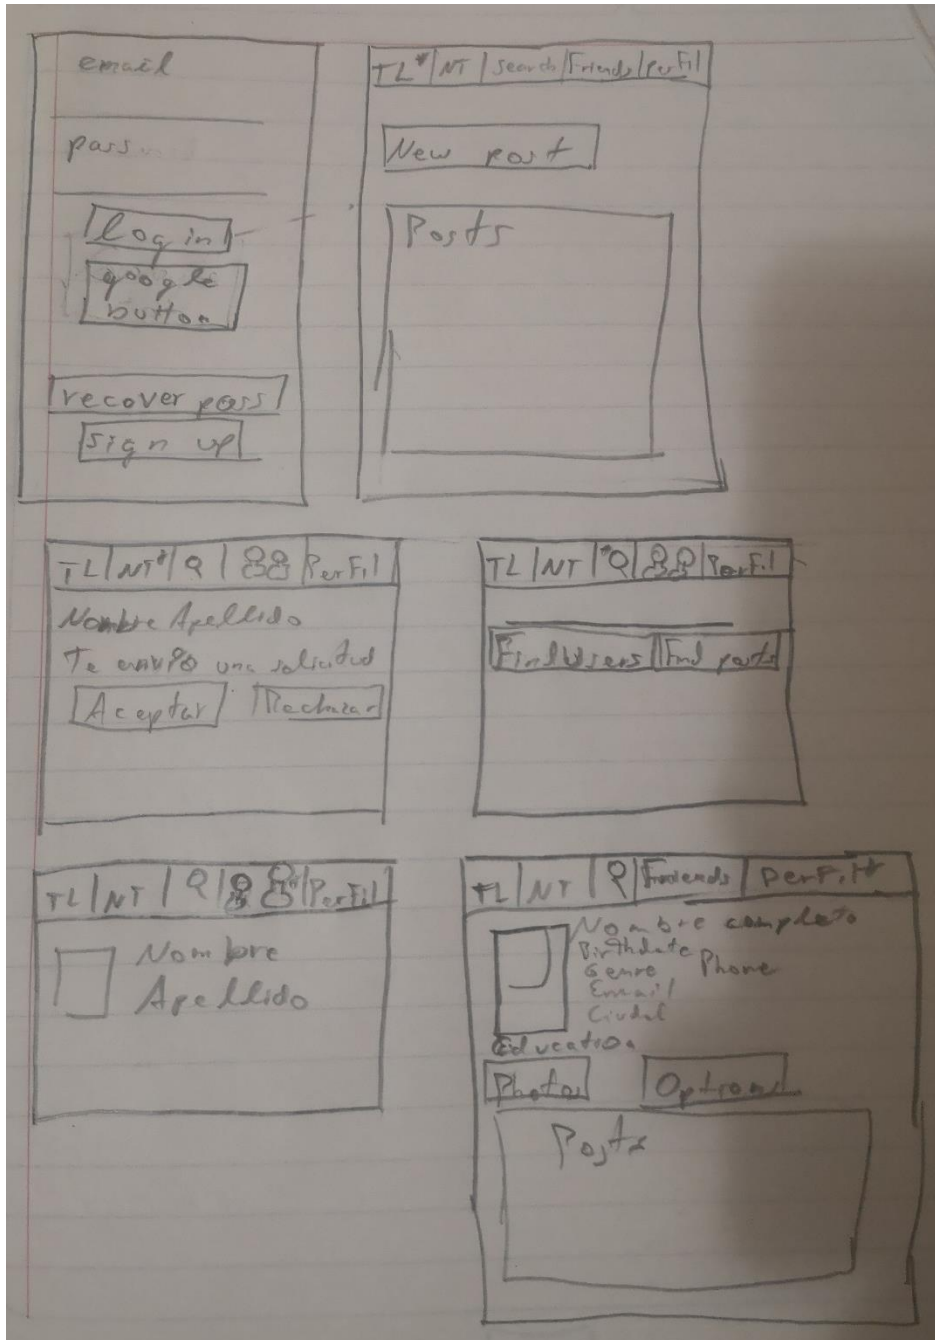 email
pass
log in
google
button
recover pass
sign up
TL* | NT | Search | Friends | Perfil
New post
Posts
TL | NT* | Perfil
Nombre Apellido
Te envio una solicitud
Aceptar Rechazar
TL | NT | * | Perfil
Find Users Find posts
TL | NT | * | Perfil
Nombre
Apellido
TL | NT | Friends | Perfil*
Nombre completo
Birthdate
Genre Phone
Email
Ciudad
Education
Photos Options
Posts